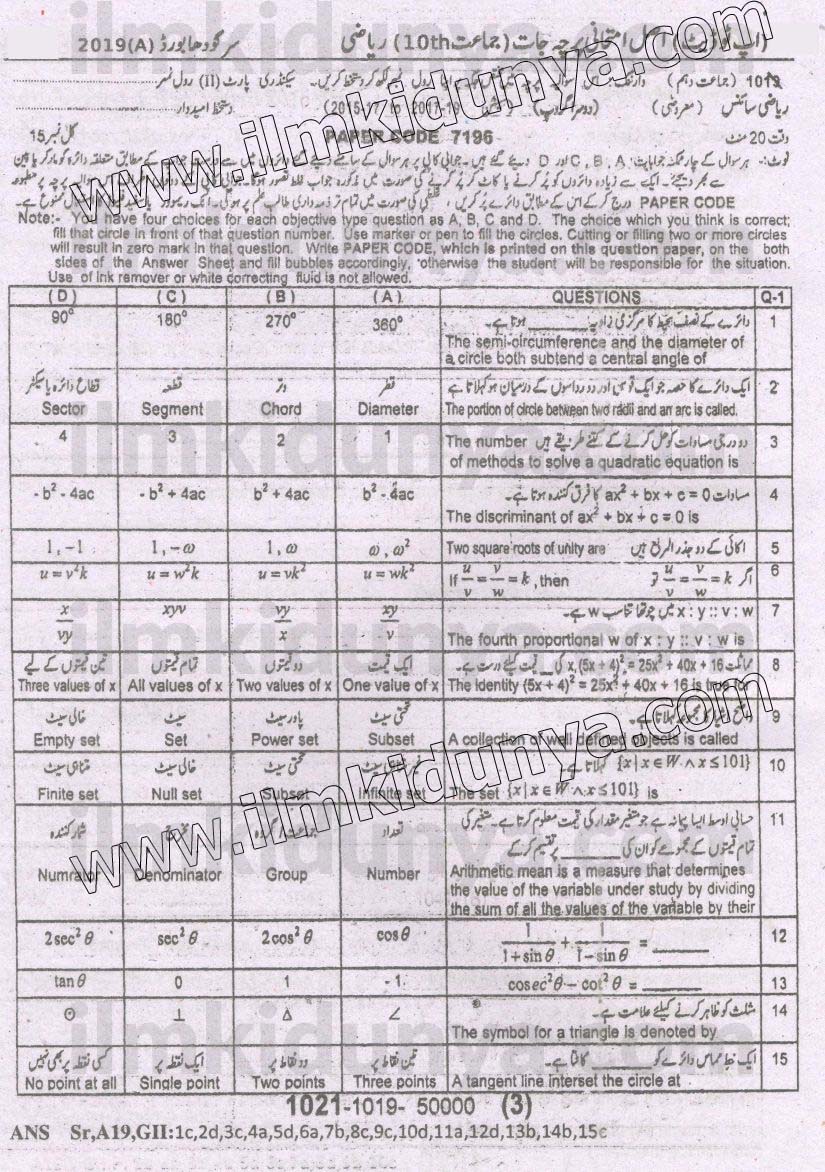 (اپ ٹو ڈیٹ) اصل امتحانی پرچہ جات (جماعت 10th) ریاضی سرگودھا بورڈ 2019(A)
1019 (جماعت دہم) سیکنڈری پارٹ (II) رول نمبر
ریاضی سائنس (معروضی) (دوسرا گروپ) (2015-17 to 2017-19) دستخط امیدوار
وقت 20 منٹ PAPER CODE 7196 کل نمبر 15
نوٹ:- ہر سوال کے چار ممکنہ جوابات A, B, C اور D دیئے گئے ہیں۔
Note:- You have four choices for each objective type question as A, B, C and D. The choice which you think is correct;
fill that circle in front of that question number. Use marker or pen to fill the circles. Cutting or filling two or more circles
will result in zero mark in that question. Write PAPER CODE, which is printed on this question paper, on the both
sides of the Answer Sheet and fill bubbles accordingly, otherwise the student will be responsible for the situation.
Use of ink remover or white correcting fluid is not allowed.
(D) (C) (B) (A) QUESTIONS Q-1
90° 180° 270° 360° دائرے کے نصف محیط کا مرکزی زاویہ ______ ہوتا ہے۔ 1
The semi-circumference and the diameter of
a circle both subtend a central angle of
قطاع دائرہ یا سیکٹر قطعہ وتر قطر ایک دائرے کا حصہ جو ایک قوس اور دو رداسوں کے درمیان ہو کہلاتا ہے 2
Sector Segment Chord Diameter The portion of circle between two radii and an arc is called.
4 3 2 1 The number دو درجی مساوات کو حل کرنے کے کتنے طریقے ہیں 3
of methods to solve a quadratic equation is
- b² - 4ac - b² + 4ac b² + 4ac b² - 4ac مساوات ax² + bx + c = 0 کا فرق کنندہ ہوتا ہے۔ 4
The discriminant of ax² + bx + c = 0 is
1, -1 1, -ω 1, ω ω, ω² Two square roots of unity are اکائی کے دو جذر المربع ہیں 5
u = v²k u = w²k u = vk² u = wk² If u/v = v/w = k, then اگر u/v = v/w = k تو 6
x/vy xyv vy/x xy/v x : y :: v : w میں چوتھا تناسب w ہے۔ 7
The fourth proportional w of x : y :: v : w is
تین قیمتوں کے لیے تمام قیمتوں دو قیمتوں ایک قیمت مماثلت (5x + 4)² = 25x² + 40x + 16, x کی ___ قیمت کیلئے درست ہے۔ 8
Three values of x All values of x Two values of x One value of x The identity (5x + 4)² = 25x² + 40x + 16 is true for
خالی سیٹ سیٹ پاور سیٹ تحتی سیٹ کہلاتا ہے۔ 9
Empty set Set Power set Subset A collection of well defined objects is called
متناہی سیٹ خالی سیٹ تحتی سیٹ {x|x∈W∧x≤101} کہلاتا ہے 10
Finite set Null set Subset Infinite set The set {x|x∈W∧x≤101} is
شمار کنندہ جماعت/گروہ تعداد حسابی اوسط ایسا پیمانہ ہے جو متغیر مقدار کی قیمت معلوم کرتا ہے۔ متغیر کی 11
تمام قیمتوں کے مجموعے کو ان کی ______ پر تقسیم کرکے
Numrator Denominator Group Number Arithmetic mean is a measure that determines
the value of the variable under study by dividing
the sum of all the values of the variable by their
2sec²θ sec²θ 2cos²θ cosθ 1/(1+sinθ) + 1/(1-sinθ) = ______ 12
tanθ 0 1 -1 cosec²θ - cot²θ = ______ 13
⊙ ⊥ Δ ∠ مثلث کو ظاہر کرنے کیلئے علامت ہے۔ 14
The symbol for a triangle is denoted by
کسی نقطہ پر بھی نہیں ایک نقطہ پر دو نقاط پر تین نقاط پر ایک خط مماس دائرے کو ______ کاٹتا ہے۔ 15
No point at all Single point Two points Three points A tangent line interset the circle at
1021-1019- 50000 (3)
ANS Sr,A19,GII:1c,2d,3c,4a,5d,6a,7b,8c,9c,10d,11a,12d,13b,14b,15c
www.ilmkidunya.com
www.ilmkidunya.com
ilmkidunya.com